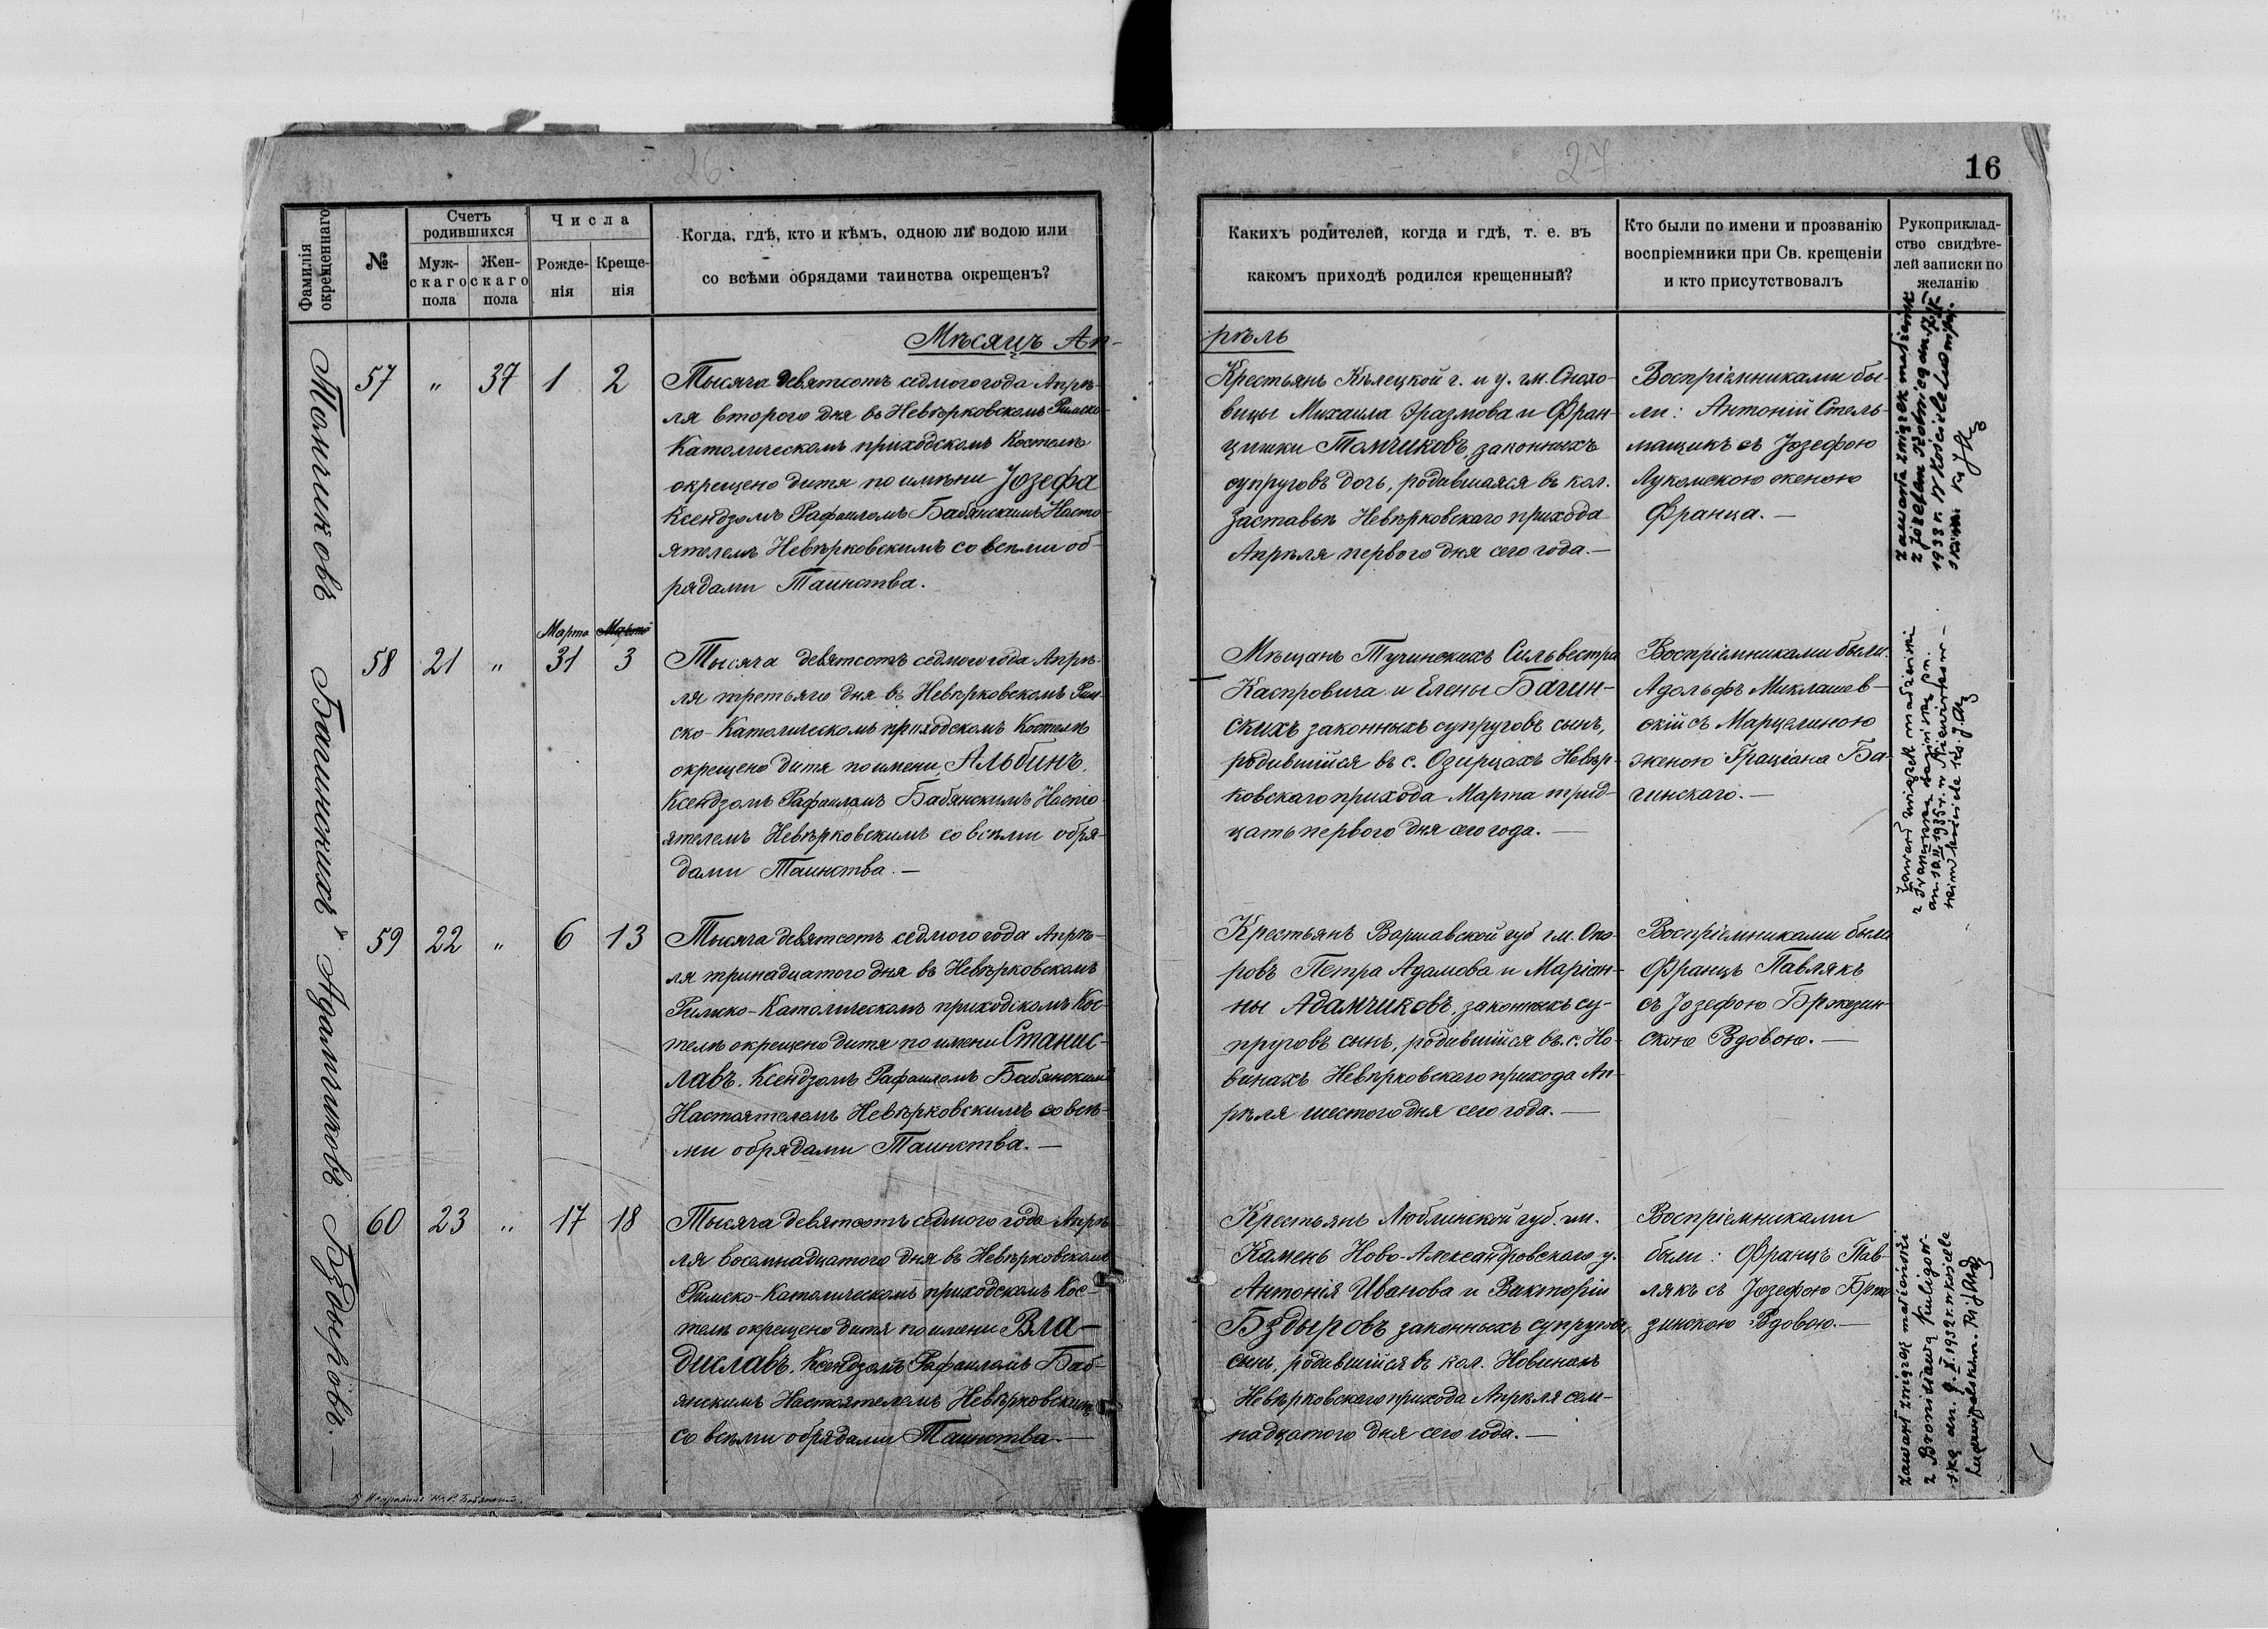 26.
27
16
Фамилія окрещеннаго
№
Счетъ родившихся
Мужскаго пола
Женскаго пола
Числа
Рожденія
Крещенія
Когда, гдѣ, кто и кѣмъ, одною ли водою или
со всѣми обрядами таинства окрещенъ?
Какихъ родителей, когда и гдѣ, т. е. въ
какомъ приходѣ родился крещенный?
Кто были по имени и прозванію
воспріемники при Св. крещеніи
и кто присутствовалъ
Рукоприклад-
ство свидѣте-
лей записки по
желанію
Мѣсяцъ Ап-
рѣль
Томчиковъ
57 " 37 1 2
Тысяча девятсотъ седмого года Апрѣ-
ля второго дня въ Невѣрковскомъ Римско-
Католическомъ приходскомъ Костелѣ
окрещено дитя по имени Іозефа
Ксендзомъ Рафаиломъ Бабянскимъ Насто-
ятелемъ Невѣрковскимъ со всѣми об-
рядами Таинства.
Крестьянъ Кѣлецкой г. и у. гм. Снохо-
вицы Михаила Эразмова и Фран-
цишки Томчиковъ, законныхъ
супруговъ дочь, родившаяся въ кол.
Заставье Невѣрковскаго прихода
Апрѣля первого дня сего года.—
Воспріемниками бы-
ли: Антоній Стель-
мащикъ съ Іозефою
Лукомскою женою
Франца.—
zawarła związek małżeński
z Józefem
1933 r. w kościele
Багинскихъ
Марта Марта
58 21 " 31 3
Тысяча девятсотъ седмого года Апрѣ-
ля третьяго дня въ Невѣрковскомъ Рим-
ско-Католическомъ приходскомъ Костелѣ
окрещено дитя по имени Альбинъ.
Ксендзомъ Рафаиломъ Бабянскимъ Насто-
ятелемъ Невѣрковскимъ со всѣми обря-
дами Таинства.—
Мѣщанъ Тучинскихъ Сильвестра
Каспровича и Елены Багин-
скихъ законныхъ супруговъ сынъ,
родившійся въ с. Озирцахъ Невѣр-
ковскаго прихода Марта трид-
цать первого дня сего года.—
Воспріемниками были:
Адольфъ Миклашев-
скій съ Марцелиною
женою Граціана Ба-
гинскаго.—
Zawarł związek małżeński
z Franciszką
dn. 10.II.1935 r. w Niewirkow-
skim kościele Ks.
Адамчиковъ
59 22 " 6 13
Тысяча девятсотъ седмого года Апрѣ-
ля тринадцатого дня въ Невѣрковскомъ
Римско-Католическомъ приходскомъ Кос-
телѣ окрещено дитя по имени Станис-
лавъ. Ксендзомъ Рафаиломъ Бабянскимъ
Настоятелемъ Невѣрковскимъ со всѣ-
ми обрядами Таинства.—
Крестьянъ Варшавской губ гм. Опо-
ровъ Петра Адамова и Маріан-
ны Адамчиковъ, законныхъ су-
пруговъ сынъ, родившійся въ с. Но-
винахъ Невѣрковскаго прихода Ап-
рѣля шестого дня сего года.—
Воспріемниками были
Францъ Павлякъ
съ Іозефою Бржезин-
скою Вдовою.—
Бздыровъ.—
60 23 " 17 18
Тысяча девятсотъ седмого года Апрѣ-
ля восемнадцатого дня въ Невѣрковскомъ
Римско-Католическомъ приходскомъ Кос-
телѣ окрещено дитя по имени Вла-
диславъ. Ксендзомъ Рафаиломъ Баб-
янскимъ Настоятелемъ Невѣрковскимъ
со всѣми обрядами Таинства.—
Крестьянъ Люблинской губ. гм.
Камень Ново-Александровского у.
Антонія Иванова и Викторіи
Бздыровъ законныхъ супруговъ,
сынъ, родившійся въ кол. Новинахъ
Невѣрковскаго прихода Апрѣля сем-
надцатого дня сего года.—
Воспріемниками
были: Францъ Пав-
лякъ съ Іозефою Брже-
зинскою Вдовою.—
zawarł związek małżeński
z Bronisławą Kuligow-
ską dn. 9.X.1932 r. w kościele